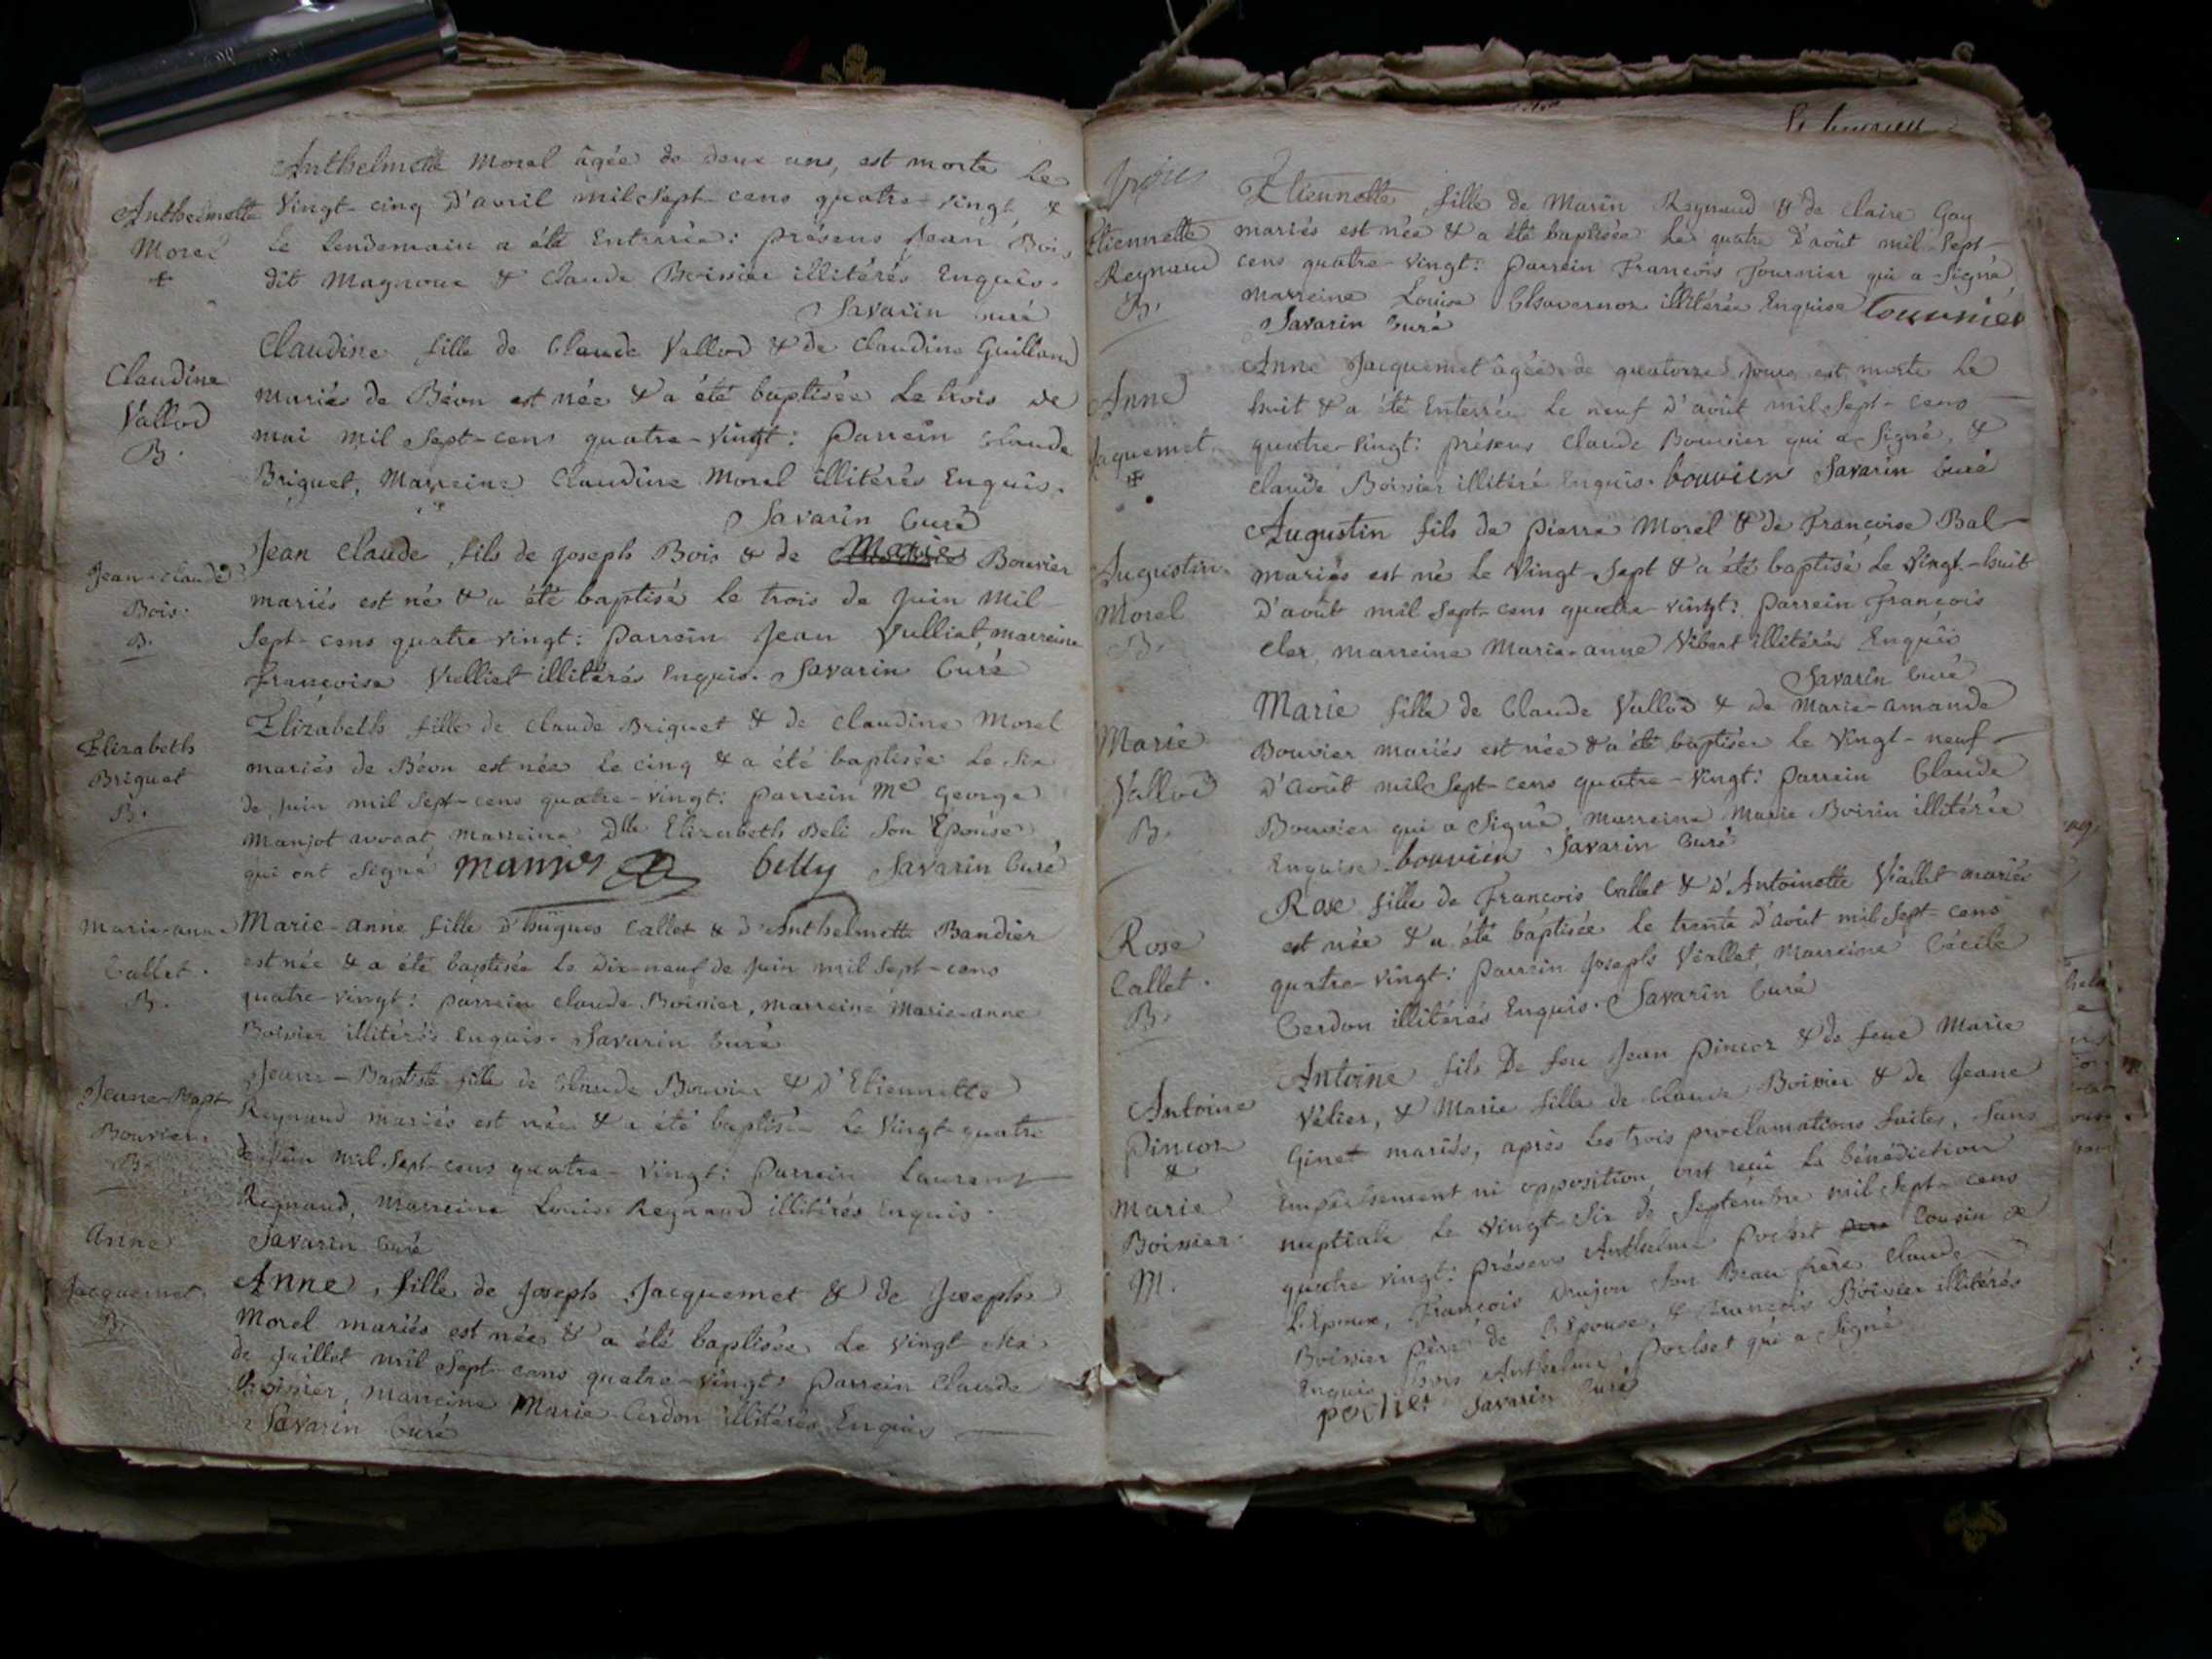 Anthelmette Morel âgée de deux ans, est morte Le
Anthelmette
Morel
+
Vingt-cinq d'avril mil Sept-cens quatre-vingt &
Le Lendemain a été Enterrée: présens Jean Bois
dit Magnoux & Claude Boissier illitérés Enquis.
Savarin Curé
Claudine
Vallod
B.
Claudine fille de Claude Vallod & de Claudine Guilland
mariés de Béon est née & a été baptisée Le trois de
mai mil Sept-cens quatre-vingt: Parrein Claude
Briguet, Marreine Claudine Morel illitérés Enquis.
Savarin Curé
Jean-Claude
Bois.
B.
Jean Claude fils de Joseph Bois & de Marie Bouvier
mariés est né & a été baptisé le trois de Juin Mil
Sept-cens quatre-vingt: Parrein Jean Vulliet marreine
Françoise Vulliet illitérés Enquis. Savarin Curé
Elizabeth
Briguet
B.
Elizabeth fille de Claude Briguet & de Claudine Morel
mariés de Béon est née le cinq & a été baptisée Le Six
de Juin mil Sept-cens quatre-vingt: Parrein Me George
Manjot avocat, marreine Dlle Elizabeth Beli Son Epouse
qui ont Signé manjot belly Savarin Curé
Marie-anne
Callet.
B.
Marie-anne fille d'hügues Callet & d'Anthelmette Bandier
est née & a été baptisée Le Dix-neuf de Juin mil Sept-cens
quatre-vingt: parrein Claude Boissier, marreine Marie-anne
Boissier illitérés Enquis. Savarin Curé
Jeanne-Bapt
Bouvier
B.
Jeanne-Baptiste fille de Claude Bouvier & d'Etiennette
Reynaud mariés est née & a été baptisée Le Vingt-quatre
de Juin mil Sept-cens quatre-vingt: Parrein Laurent
Reynaud, Marreine Louise Reynaud illitérés Enquis.
Savarin Curé
Anne
Jacquemet
B.
Anne, fille de Joseph Jacquemet & de Josephe
Morel mariés est née & a été baptisée Le Vingt-Six
de Juillet mil Sept-cens quatre-vingt: Parrein Claude
Boissier, marreine Marie Cerdon illitérés Enquis
Savarin Curé
Etiennette
Reynaud
B.
Etiennette fille de Marin Reynaud & de Claire Gay
mariés est née & a été baptisée Le quatre d'août mil Sept-
cens quatre-vingt: Parrein François Fournier qui a Signé,
marreine Louise Chavarnoz illitérée Enquise
Savarin Curé
Anne
Jaquemet.
+
Anne Jacquemet âgée de quatorze Jours est morte Le
huit & a été Enterrée Le neuf d'août mil Sept-cens
quatre-vingt: présens Claude Bouvier qui a Signé, &
Claude Boissier illitéré Enquis. bouvier Savarin Curé
Augustin
Morel
B.
Augustin fils de Pierre Morel & de Françoise Bal
mariés est né Le Vingt-Sept & a été baptisé Le Vingt-huit
d'août mil Sept-cens quatre-vingt: Parrein François
Cler, marreine Marie-anne Vibert illitérés Enquis
Savarin Curé
Marie
Vallod
B.
Marie fille de Claude Vallod & de Marie-amande
Bouvier mariés est née & a été baptisée le Vingt-neuf
d'août mil Sept-cens quatre-vingt: Parrein Claude
Bouvier qui a Signé, Marreine Marie Boivin illitérée
Enquise. bouvier Savarin Curé
Rose
Callet.
B.
Rose fille de François Callet & d'Antoinette Viallet mariés
est née & a été baptisée le trente d'août mil Sept-cens
quatre-vingt: Parrein Joseph Viallet, Marreine Cécile
Cerdon illitérés Enquis. Savarin Curé
Antoine
Pincon
&
Marie
Boissier
M.
Antoine fils De feu Jean Pincon & de feue Marie
Vélier, & Marie fille de Claude Boissier & de Jeane
Ginet mariés, après Les trois proclamations faites, Sans
Empêchement ni opposition, ont reçu La bénédiction
nuptiale Le Vingt-Six de Septembre mil Sept-cens
quatre vingt: présens Anthelme Pochet Cousin de
L'Epoux, François Drujon Son Beau frère, Claude
Boissier Père de L'Epouse, & François Boissier illitérés
Enquis hors Anthelme Pochet qui a Signé
pochet Savarin Curé